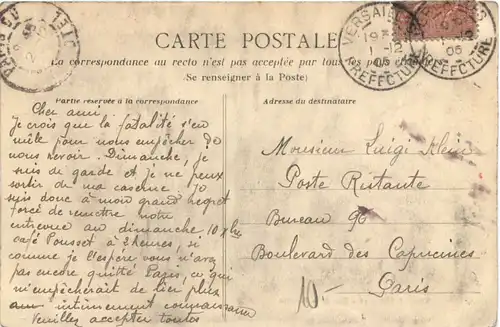 CARTE POSTALE
La correspondance au recto n'est pas acceptée par tous les pays étrangers
(Se renseigner à la Poste)
Partie réservée à la correspondance
Adresse du destinataire
VERSAILLES
1 -12
05
PREFECTURE
Cher ami.
Je crois que la fatalité s'en
mêle pour nous empêcher de
nous revoir. Dimanche, je
suis de garde et je ne peux
sortir de ma caserne. Je
suis donc à mon grand regret
forcé de remettre notre
entrevue au dimanche 10 xbre
café Pousset à 2 heures, si
comme je l'espère vous n'avez
pas encore quitté Paris, ce qui
m'empêcherait de lier plus
intimement connaissance
Veuillez accepter toutes
Monsieur Luigi Klein
Poste Restante
Bureau 90
Boulevard des Capucines
Paris
10-